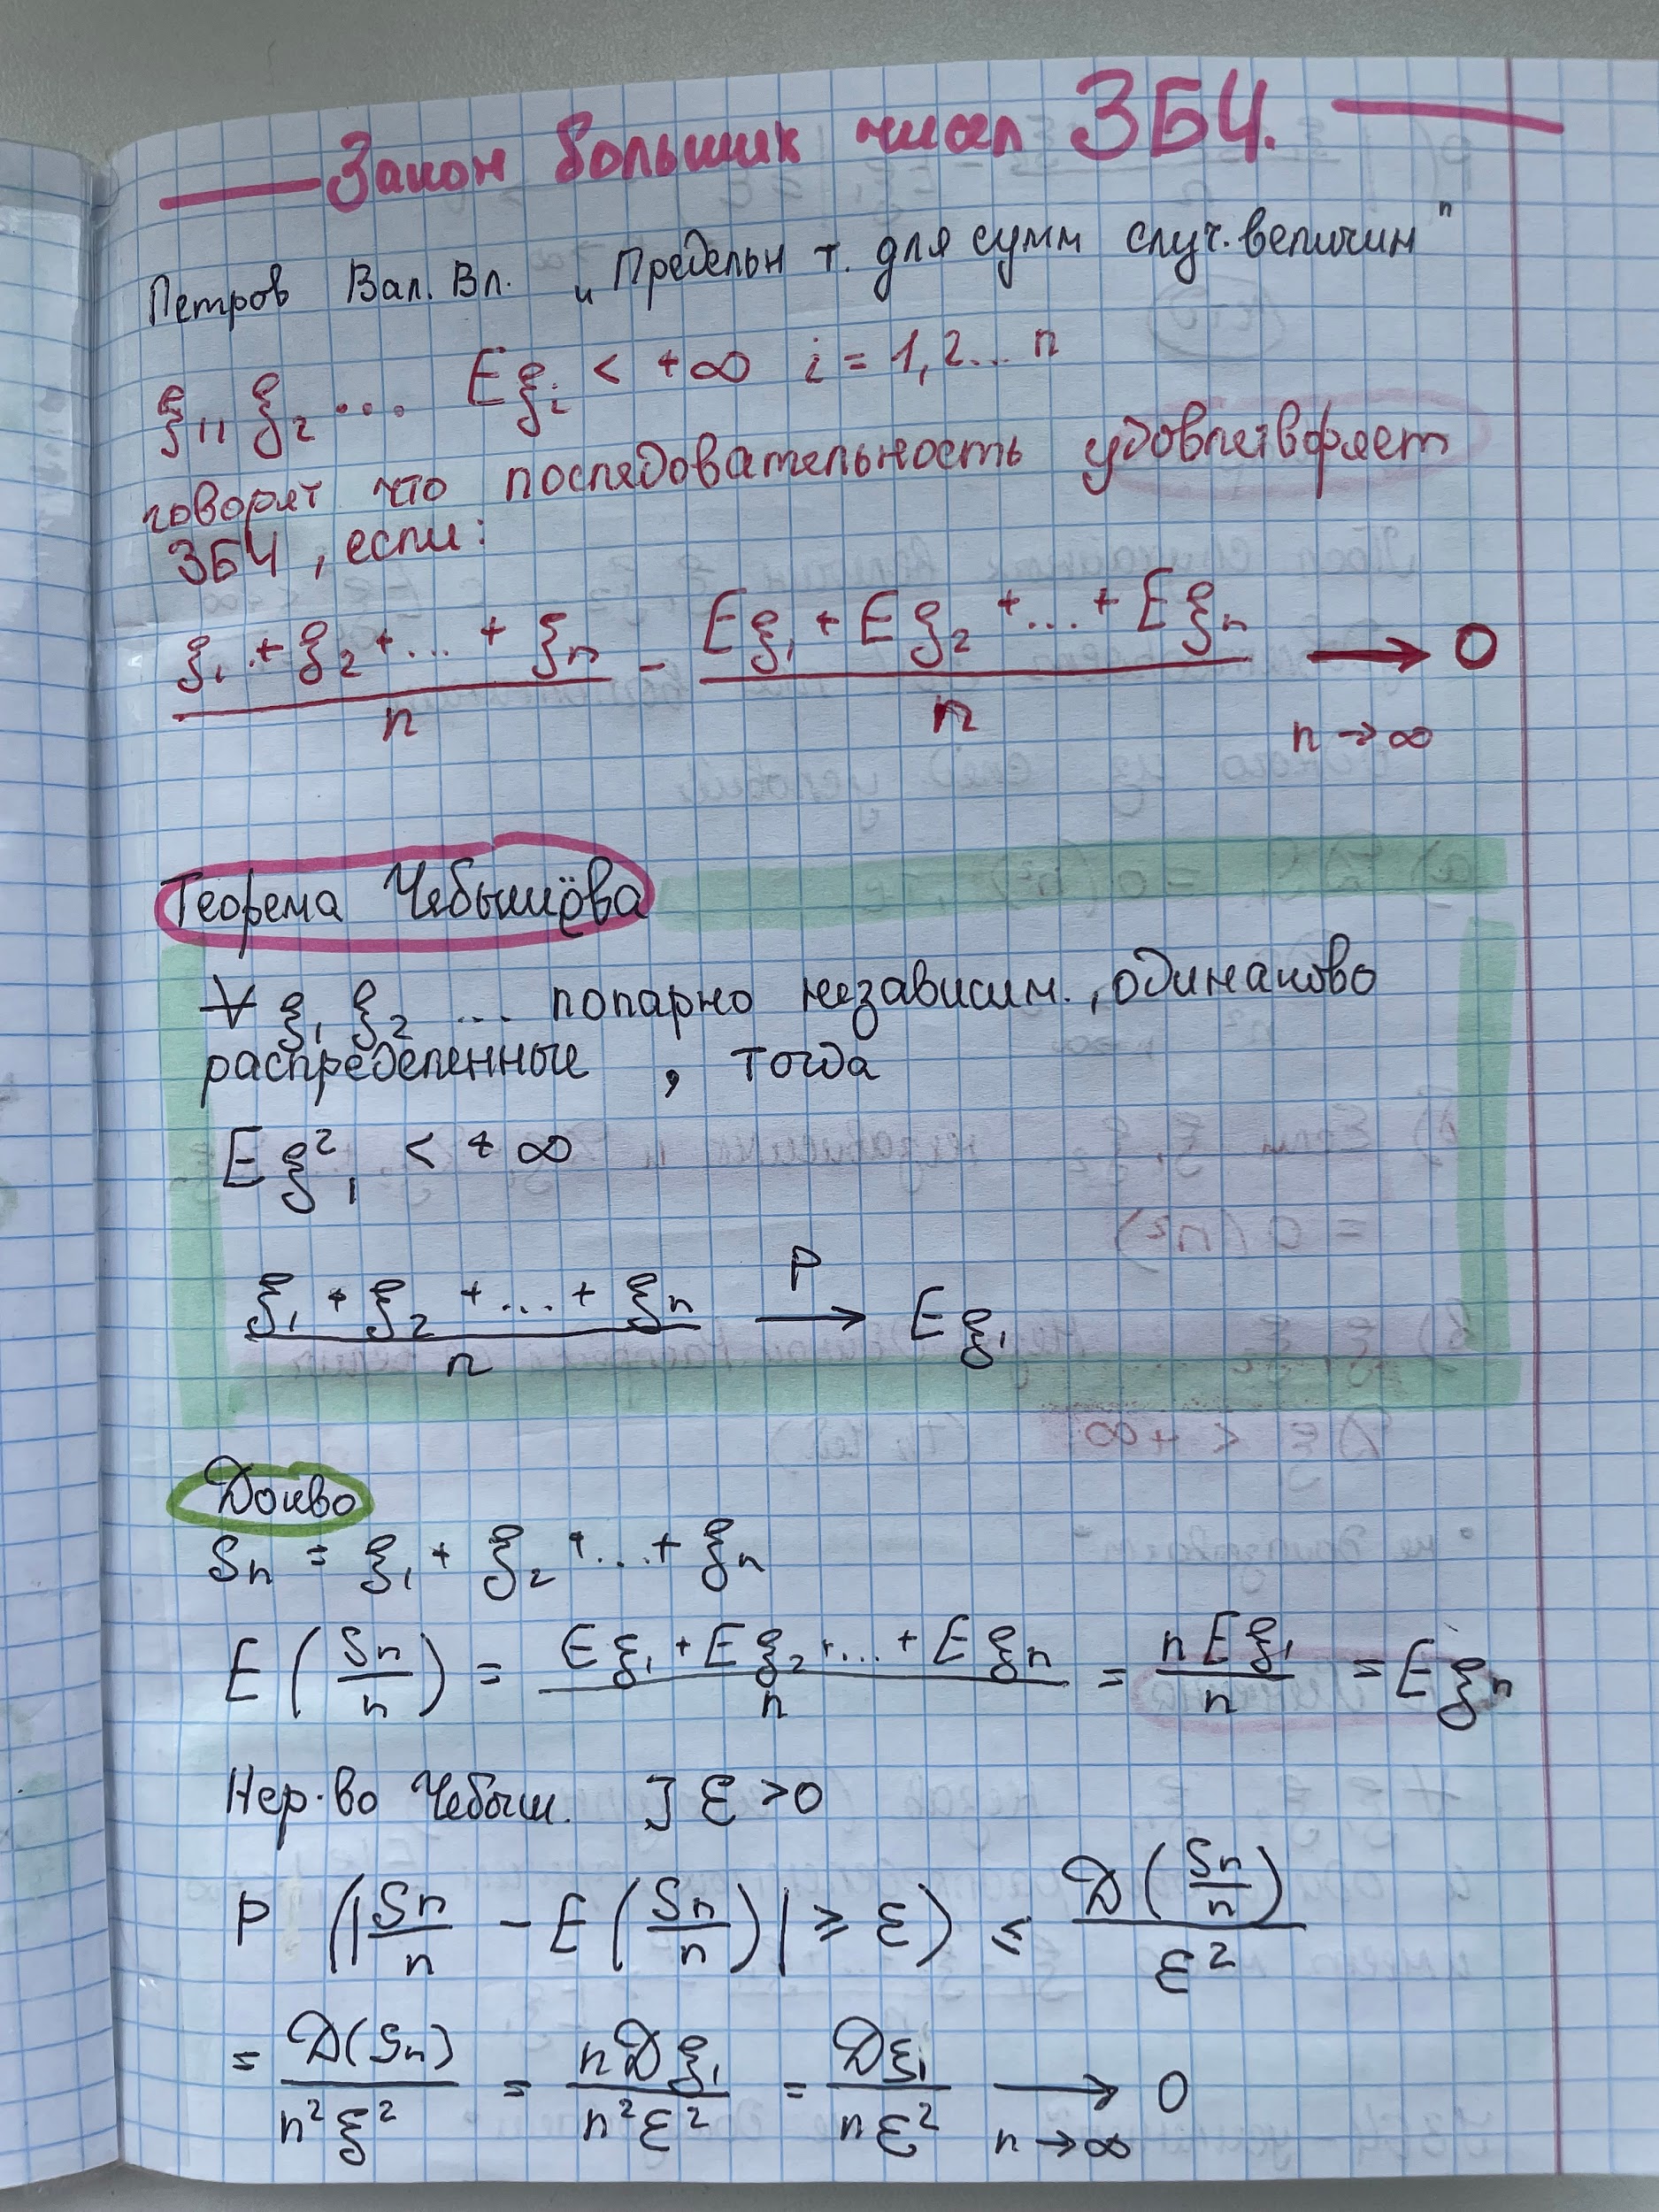 Закон больших чисел ЗБЧ.
Петров Вал. Вл. „Предельн т. для сумм случ. величин"
ξ₁, ξ₂ ... Eξᵢ < +∞ i = 1, 2... n
говорят что последовательность удовлетворяет
ЗБЧ, если:
(ξ₁ + ξ₂ + ... + ξₙ)/n - (Eξ₁ + Eξ₂ + ... + Eξₙ)/n → 0
n → ∞
Теорема Чебышёва
∀ ξ₁ ξ₂ ... попарно независим., одинаково
распределенные , тогда
Eξ₁² < +∞
(ξ₁ + ξ₂ + ... + ξₙ)/n →ᴾ Eξ₁
Док-во
Sn = ξ₁ + ξ₂ + ... + ξₙ
E(Sn/n) = (Eξ₁ + Eξ₂ + ... + Eξₙ)/n = nEξ₁/n = Eξₙ
Нер-во Чебыш. ] ε > 0
P (|Sn/n - E(Sn/n)| ≥ ε) ≤ D(Sn/n)/ε²
= D(Sn)/n²ξ² = nDξ₁/n²ε² = Dξ₁/nε² → 0
n → ∞